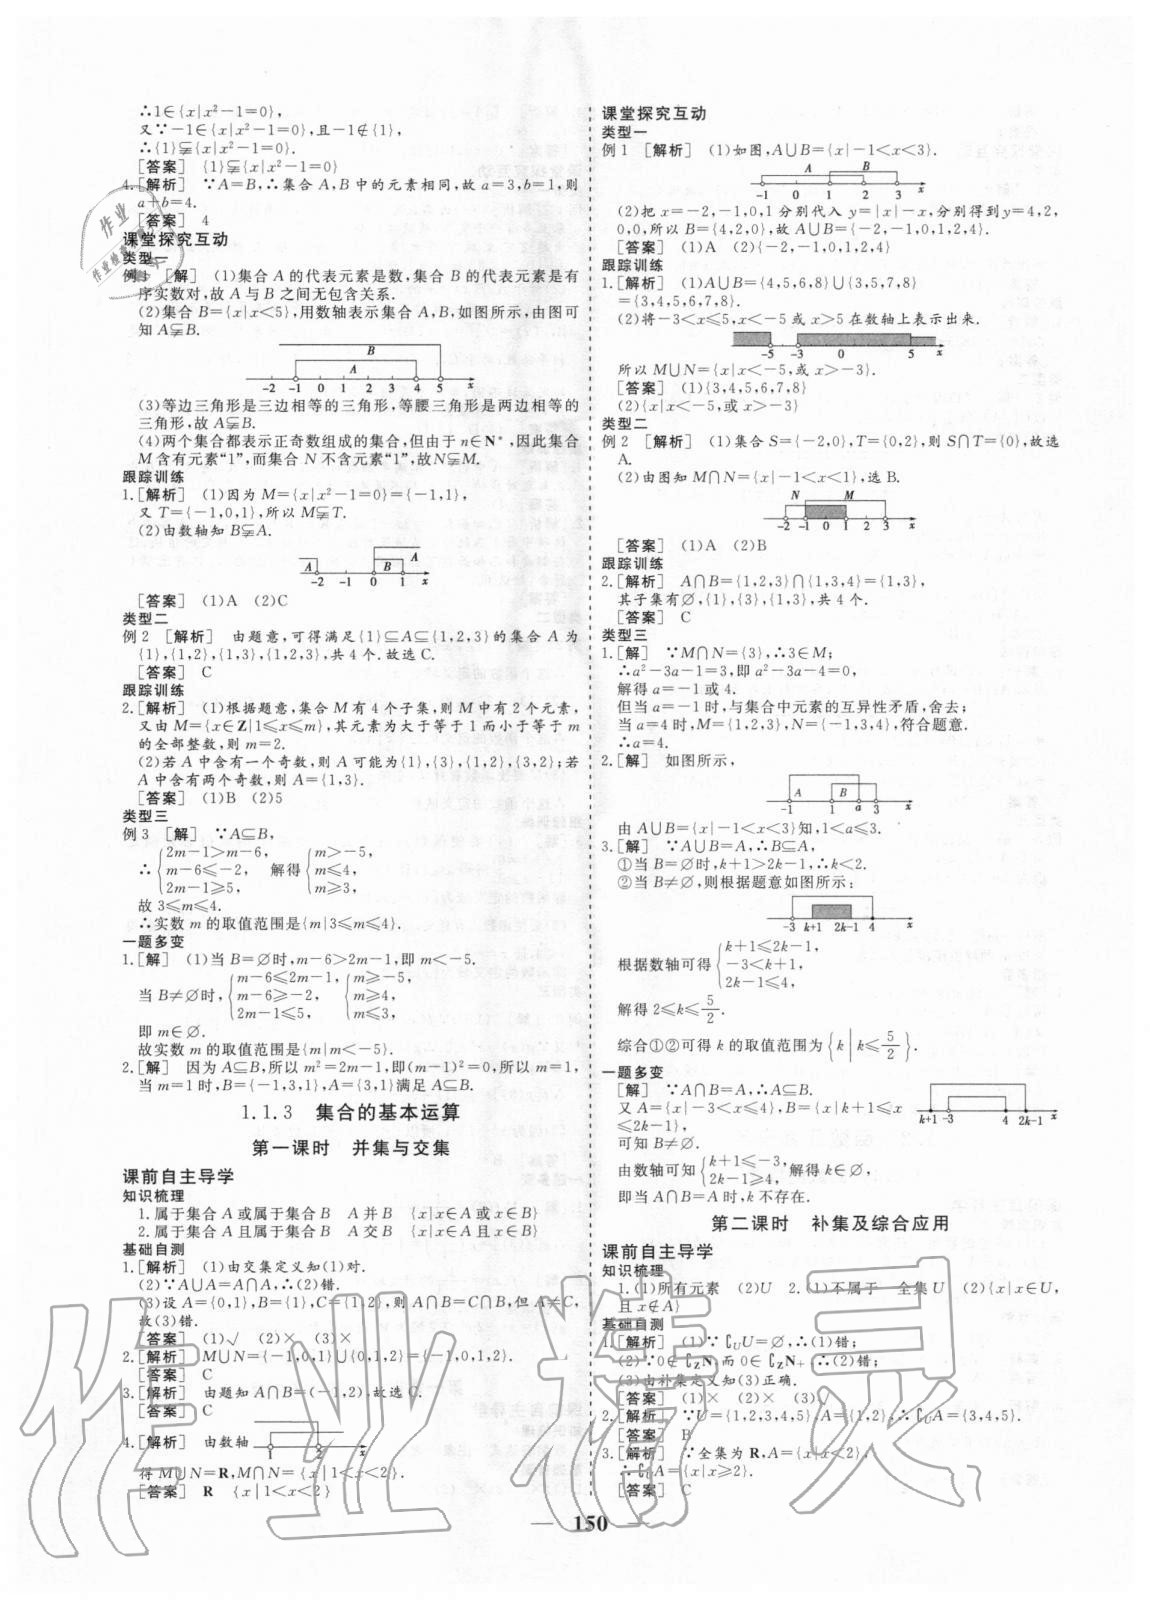 ∴1∈{x|x²-1=0},
又∵-1∈{x|x²-1=0},且-1∉{1},
∴{1}⫋{x|x²-1=0}.
[答案] {1}⫋{x|x²-1=0}
4.[解析] ∵A=B,∴集合A,B中的元素相同,故a=3,b=1,则
a+b=4.
[答案] 4
课堂探究互动
类型一
例1 [解] (1)集合A的代表元素是数,集合B的代表元素是有
序实数对,故A与B之间无包含关系.
(2)集合B={x|x<5},用数轴表示集合A,B,如图所示,由图可
知A⫋B.
B
A
-2 -1 0 1 2 3 4 5 x
(3)等边三角形是三边相等的三角形,等腰三角形是两边相等的
三角形,故A⫋B.
(4)两个集合都表示正奇数组成的集合,但由于n∈N*,因此集合
M含有元素“1”,而集合N不含元素“1”,故N⫋M.
跟踪训练
1.[解析] (1)因为M={x|x²-1=0}={-1,1},
又T={-1,0,1},所以M⫋T.
(2)由数轴知B⫋A.
A A B
-2 -1 0 1 x
[答案] (1)A (2)C
类型二
例2 [解析] 由题意,可得满足{1}⊆A⊆{1,2,3}的集合A为
{1},{1,2},{1,3},{1,2,3},共4个.故选C.
[答案] C
跟踪训练
2.[解析] (1)根据题意,集合M有4个子集,则M中有2个元素,
又由M={x∈Z|1≤x≤m},其元素为大于等于1而小于等于m
的全部整数,则m=2.
(2)若A中含有一个奇数,则A可能为{1},{3},{1,2},{3,2};若
A中含有两个奇数,则A={1,3}.
[答案] (1)B (2)5
类型三
例3 [解] ∵A⊆B,
∴{2m-1>m-6, m-6≤-2, 2m-1≥5, 解得{m>-5, m≤4, m≥3,
故3≤m≤4.
∴实数m的取值范围是{m|3≤m≤4}.
一题多变
1.[解] (1)当B=∅时,m-6>2m-1,即m<-5.
当B≠∅时,{m-6≤2m-1, m-6≥-2, 2m-1≤5, {m≥-5, m≥4, m≤3,
即m∈∅.
故实数m的取值范围是{m|m<-5}.
2.[解] 因为A⊆B,所以m²=2m-1,即(m-1)²=0,所以m=1,
当m=1时,B={-1,3,1},A={3,1}满足A⊆B.
1.1.3 集合的基本运算
第一课时 并集与交集
课前自主导学
知识梳理
1.属于集合A或属于集合B A并B {x|x∈A或x∈B}
2.属于集合A且属于集合B A交B {x|x∈A且x∈B}
基础自测
1.[解析] (1)由交集定义知(1)对.
(2)∵A∪A=A∩A,∴(2)错.
(3)设A={0,1},B={1},C={1,2},则A∩B=C∩B,但A≠C,
故(3)错.
[答案] (1)√ (2)× (3)×
2.[解析] M∪N={-1,0,1}∪{0,1,2}={-1,0,1,2}.
[答案] C
3.[解析] 由题知A∩B=(-1,2).故选C.
[答案] C
4.[解析] 由数轴 1 2 x
得M∪N=R,M∩N={x|1<x<2}.
[答案] R {x|1<x<2}
课堂探究互动
类型一
例1 [解析] (1)如图,A∪B={x|-1<x<3}.
A B
-1 0 1 2 3 x
(2)把x=-2,-1,0,1分别代入y=|x|-x,分别得到y=4,2,
0,0,所以B={4,2,0},故A∪B={-2,-1,0,1,2,4}.
[答案] (1)A (2){-2,-1,0,1,2,4}
跟踪训练
1.[解析] (1)A∪B={4,5,6,8}∪{3,5,7,8}
={3,4,5,6,7,8}.
(2)将-3<x≤5,x<-5或x>5在数轴上表示出来.
-5 -3 0 5 x
所以M∪N={x|x<-5,或x>-3}.
[答案] (1){3,4,5,6,7,8}
(2){x|x<-5,或x>-3}
类型二
例2 [解析] (1)集合S={-2,0},T={0,2},则S∩T={0},故选
A.
(2)由图知M∩N={x|-1<x<1},选B.
N M
-2 -1 0 1 2 3 x
[答案] (1)A (2)B
跟踪训练
2.[解析] A∩B={1,2,3}∩{1,3,4}={1,3},
其子集有∅,{1},{3},{1,3},共4个.
[答案] C
类型三
1.[解] ∵M∩N={3},∴3∈M;
∴a²-3a-1=3,即a²-3a-4=0,
解得a=-1或4.
但当a=-1时,与集合中元素的互异性矛盾,舍去;
当a=4时,M={1,2,3},N={-1,3,4},符合题意.
∴a=4.
2.[解] 如图所示,
A B
-1 1 a 3 x
由A∪B={x|-1<x<3}知,1<a≤3.
3.[解] ∵A∪B=A,∴B⊆A,
①当B=∅时,k+1>2k-1,∴k<2.
②当B≠∅,则根据题意如图所示:
-3 k+1 2k-1 4 x
根据数轴可得{k+1≤2k-1, -3<k+1, 2k-1≤4,
解得2≤k≤5/2.
综合①②可得k的取值范围为{k|k≤5/2}.
一题多变
[解] ∵A∩B=A,∴A⊆B.
又A={x|-3<x≤4},B={x|k+1≤x
≤2k-1},
可知B≠∅.
k+1 -3 4 2k-1 x
由数轴可知{k+1≤-3, 2k-1≥4,解得k∈∅,
即当A∩B=A时,k不存在.
第二课时 补集及综合应用
课前自主导学
知识梳理
1.(1)所有元素 (2)U 2.(1)不属于 全集U (2){x|x∈U,
且x∉A}
基础自测
1.[解析] (1)∵∁UU=∅,∴(1)错;
(2)∵0∉∁ZN,而0∈∁ZN+,∴(2)错;
(3)由补集定义知(3)正确.
[答案] (1)× (2)× (3)
2.[解析] ∵U={1,2,3,4,5},A={1,2},∴∁UA={3,4,5}.
[答案] B
3.[解析] ∵全集为R,A={x|x<2},
∴∁RA={x|x≥2}.
[答案] C
150
作业精灵